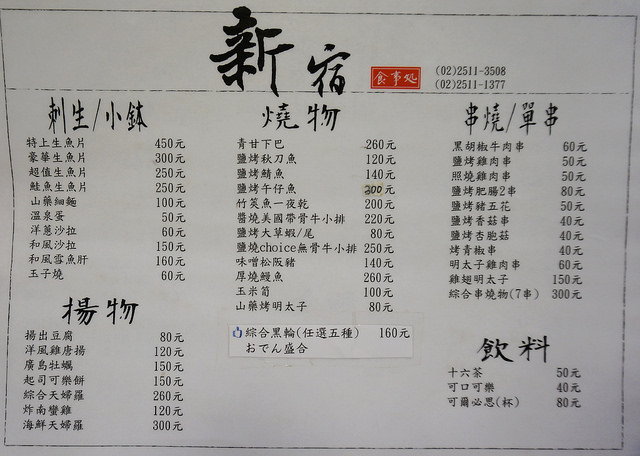 新宿
食事処
(02)2511-3508
(02)2511-1377
刺生/小鉢
特上生魚片 450元
豪華生魚片 300元
超值生魚片 250元
鮭魚生魚片 250元
山藥細麵 100元
溫泉蛋 50元
洋蔥沙拉 60元
和風沙拉 150元
和風雪魚肝 160元
玉子燒 60元
揚物
揚出豆腐 80元
洋風雞唐揚 120元
廣島牡蠣 150元
起司可樂餅 150元
綜合天婦羅 260元
炸南蠻雞 120元
海鮮天婦羅 300元
燒物
青甘下巴 260元
鹽烤秋刀魚 120元
鹽烤鯖魚 140元
鹽烤午仔魚 200元
竹筴魚一夜乾 200元
醬燒美國帶骨牛小排 220元
鹽烤大草蝦/尾 80元
鹽燒choice無骨牛小排 250元
味噌松阪豬 140元
厚燒鰻魚 260元
玉米筍 100元
山藥烤明太子 80元
綜合黑輪(任選五種) 160元
おでん盛合
串燒/單串
黑胡椒牛肉串 60元
鹽烤雞肉串 50元
照燒雞肉串 50元
鹽烤肥腸2串 80元
鹽烤豬五花 50元
鹽烤香菇串 40元
鹽烤杏胞菇 40元
烤青椒串 40元
明太子雞肉串 60元
雞翅明太子 150元
綜合串燒物(7串) 300元
飲料
十六茶 50元
可口可樂 40元
可爾必思(杯) 80元